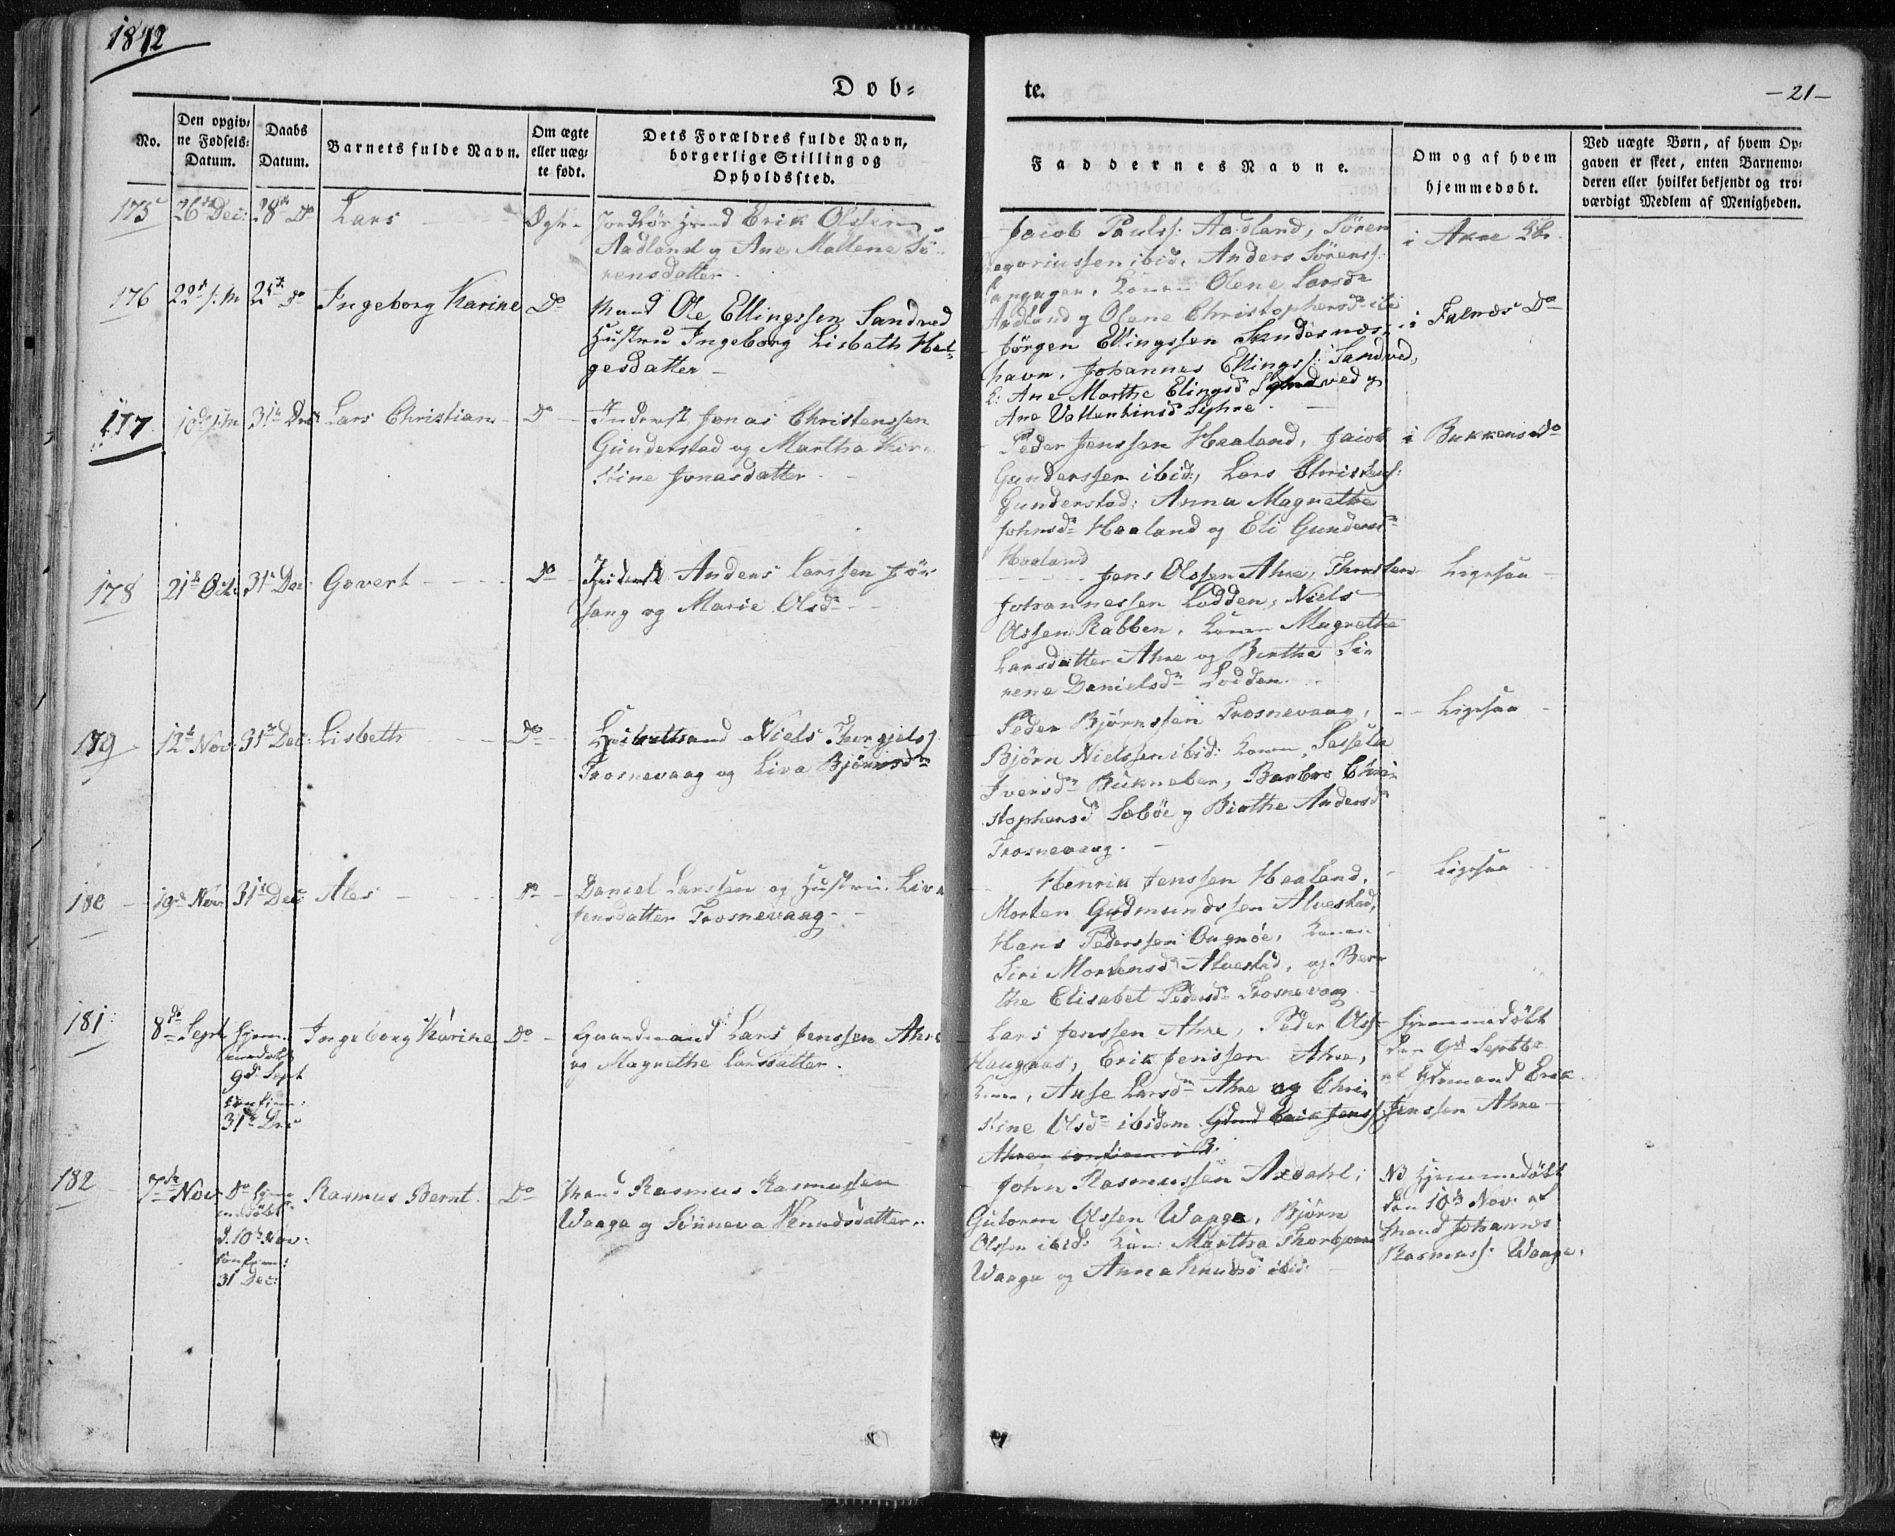 1842
Døb-
te.
- 21 -
No.
Den opgiv-
ne Fødsels-
Datum.
Daabs
Datum.
Barnets fulde Navn.
Om ægte
eller uæg-
te født.
Dets Forældres fulde Navn,
borgerlige Stilling og
Opholdssted.
Faddernes Navne.
Om og af hvem
hjemmedøbt.
Ved uægte Børn, af hvem Op-
gaven er skeet, enten Barnemo-
deren eller hvilket bekjendt og tro-
værdigt Medlem af Menigheden.
175 26de Dec: 28de Do Lars
Erik Olsen
Aadland og Ane Mallene Sö-
rensdatter.
Jacob Paulss: Aadland, Sören
Gregoriussen ibid, Anders Sörenss:
Olene Larsdr
Aadland og Olene Christophersdr ibid
i Akre K.
176 Do Ingeborg Karine Do
Mand Ole Ellingssen Sandved
Hustru Ingeborg Lisbeth Hel-
gesdatter
Jörgen Ellingssen Sandesnæs-
havn, Johannes Ellingss: Sandved,
K: Ane Marthe Elingsd Sandved og
Ane
i Falnæs Do
177 10de 31te Dec Lars Christian Do
Inderst Jonas Christenssen
Gunderstad og Martha Kir-
stine Jonasdatter.
Peder Jenssen Haaland, Jacob
Gunderssen ibid:, Lars Christens:
Gunderstad: Anna Magrethe
Johnsdr Haaland og Eli Gundersdr
Haaland
i Bukkens Do
178 21de Octb 31te Dec Govert Do
Inderst Anders Larssen
og Marie Olsdr
Jens Olssen Ahre, Thorsten
Johannessen Lodden, Niels
Olssen Rabben, Konen Magrethe
Larsdatter Ahre og Berthe Si-
rene Danielsdr Lodden
Ligesaa
179 12te Nov: 31te Dec: Lisbeth Do
Niels Thorgjels:
Trosnevaag og Liva Björnsdr
Peder Björnssen Trosnevaag,
Björn Nielssen ibid: Konen, Sessela
Iversdr Bukneber, Barbro Chri-
stophersd Sæböe og Birthe Andersd
Trosnevaag.
Ligesaa
180 19de Nov 31te Dec Ales Do
Daniel Larssen og Hustru Liva
Jensdatter Trosnevaag
Henrik Jenssen Haaland,
Morten Gudmundssen Alvestad,
Hans Pederssen Ongnöe, Konen
Siri Mortensd Alvestad, og Ber-
the Elisabet Pedersdr Trosnevaag
Ligesaa
181 8de Sept Hjem-
medøbt
9de Sept
confirm:
31te Dec
Ingeborg Karine Do
Gaardmand Lars Jenssen Ahre
og Magrethe Larsdatter.
Lars Jenssen Ahre, Peder Olss
Haugaas, Erik Jenssen Ahre,
Konen, Anse Larsdr Ahre og Chri-
stine Olsdr ibidem. Gdmd Erik Jenss:
Ahre
Hjemmedöbt
den 9de Septbr
af Gdmand Erik
Jenssen Ahre
182 7de Nov Do Hjem-
medöbt
d. 10de Nov:
confirm:
31 Dec:
Rasmus Bernt. Do
Mand Rasmus Rasmussen
Waaga og Sünneva Venudsdatter.
John Rasmussen Axdahl,
Gutorm Olssen Waaga, Björn
Olssen ibid: Kon: Martha Thorbjorns
Waaga og Anna Knudsd ibid:
NB Hjemmedöbt
den 10de Nov: af
Mand Johannes
Rasmuss: Waage.